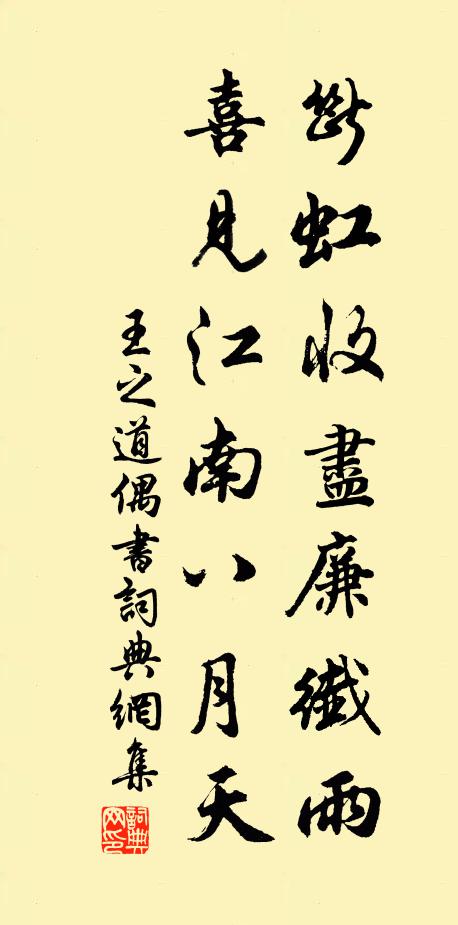 斷虹收盡廉纖雨
喜見江南八月天
王之道偶書詞典網集
詞典網印